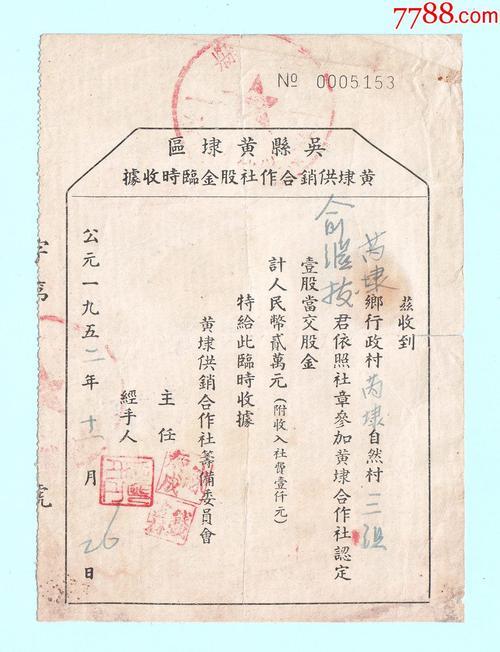 7788.com
№ 0005153
吳縣黃埭區
黃埭供銷合作社股金臨時收據
茲收到
芮埭鄉行政村芮埭自然村三組
俞 君依照社章參加黃埭合作社認定
壹股當交股金
計人民幣貳萬元(附收入社費壹仟元)
特給此臨時收據
黃埭供銷合作社籌備委員會
主任
經手人
公元一九五二年十二月26日
字第 號